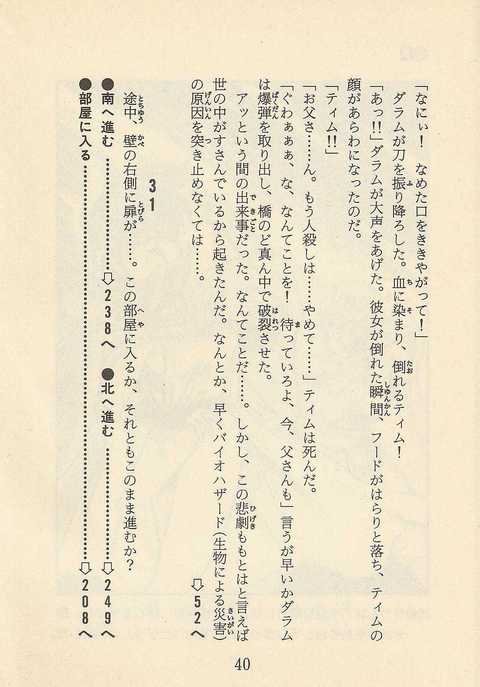 「なにぃ！　なめた口をききやがって！」
　ダラムが刀を振り降ろした。血に染まり、倒れるティム！
「あっ!!」ダラムが大声をあげた。彼女が倒れた瞬間、フードがはらりと落ち、ティムの
顔があらわになったのだ。
「ティム!!」
「お父さ……ん。もう人殺しは……やめて……」ティムは死んだ。
「ぐわぁぁぁ、な、なんてことを！　待っていろよ、今、父さんも」言うが早いかダラム
は爆弾を取り出し、橋のど真ん中で破裂させた。
　アッという間の出来事だった。なんてことだ……。しかし、この悲劇ももとはと言えば
世の中がすさんでいるから起きたんだ。なんとか、早くバイオハザード（生物による災害）
の原因を突き止めなくては……。
⇨52へ
31
途中、壁の右側に扉が……。この部屋に入るか、それともこのまま進むか？
●南へ進む……………⇨238へ　●北へ進む……………⇨249へ
●部屋に入る……………………………………………⇨208へ
40